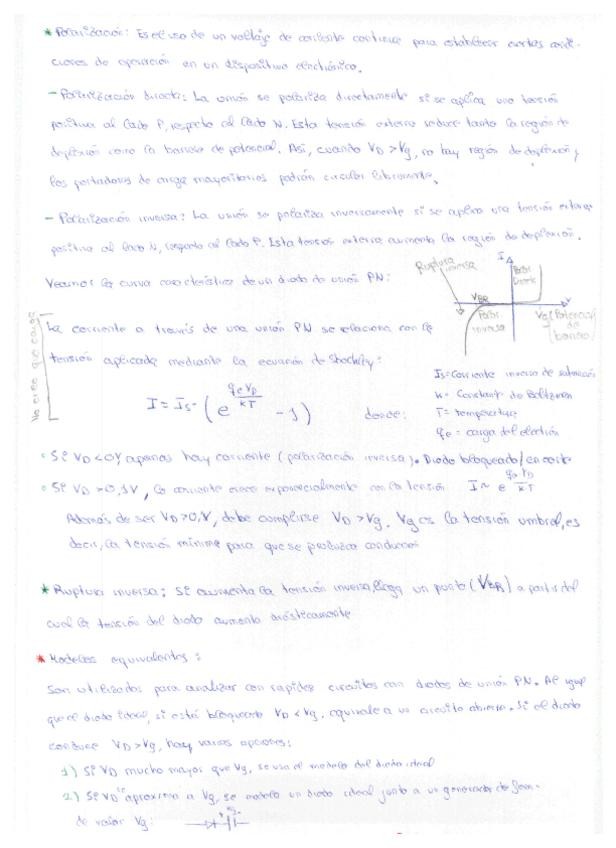 * Polarización: Es el uso de un voltaje de corriente continua para establecer ciertas condi-
ciones de operación en un dispositivo electrónico.
- Polarización directa: La unión se polariza directamente si se aplica una tensión
positiva al lado P, respecto al lado N. Esta tensión externa reduce tanto la región de
deplexión como la barrera de potencial. Así, cuando VD > Vg, no hay región de deplexión y
los portadores de carga mayoritarios podrán circular libremente.
- Polarización inversa: La unión se polariza inversamente si se aplica una tensión externa
positiva al lado N, respecto al lado P. Esta tensión externa aumenta la región de deplexión.
Veamos la curva característica de un diodo de unión PN:
Ruptura inversa
I
Polar. Directa
VBR
Polar. inversa
V
Vg (Potencial de barrera)
No creo que caiga
La corriente a través de una unión PN se relaciona con la
tensión aplicada mediante la ecuación de Shockley:
I = Is · (e^(qe VD / kT) - 1) donde:
Is = Corriente inversa de saturación
k = Constante de Boltzman
T = Temperatura
qe = carga del electrón
• Si VD < 0V, apenas hay corriente (polarización inversa). Diodo bloqueado / en corte
• Si VD > 0,1V, la corriente crece exponencialmente con la tensión I ~ e^(qe VD / kT)
Además de ser VD > 0,1V, debe cumplirse VD > Vg. Vg es la tensión umbral, es
decir, la tensión mínima para que se produzca conducción
* Ruptura inversa: Si aumenta la tensión inversa, llega un punto (VBR) a partir del
cual la tensión del diodo aumenta drásticamente
* Modelos equivalentes:
Son utilizados para analizar con rapidez circuitos con diodos de unión PN. Al igual
que el diodo ideal, si está bloqueado VD < Vg, equivale a un circuito abierto. Si el diodo
conduce VD > Vg, hay varias opciones:
1) Si VD mucho mayor que Vg, se usa el modelo del diodo ideal
2) Si VD se aproxima a Vg, se modela un diodo ideal junto a un generador de
de valor Vg: